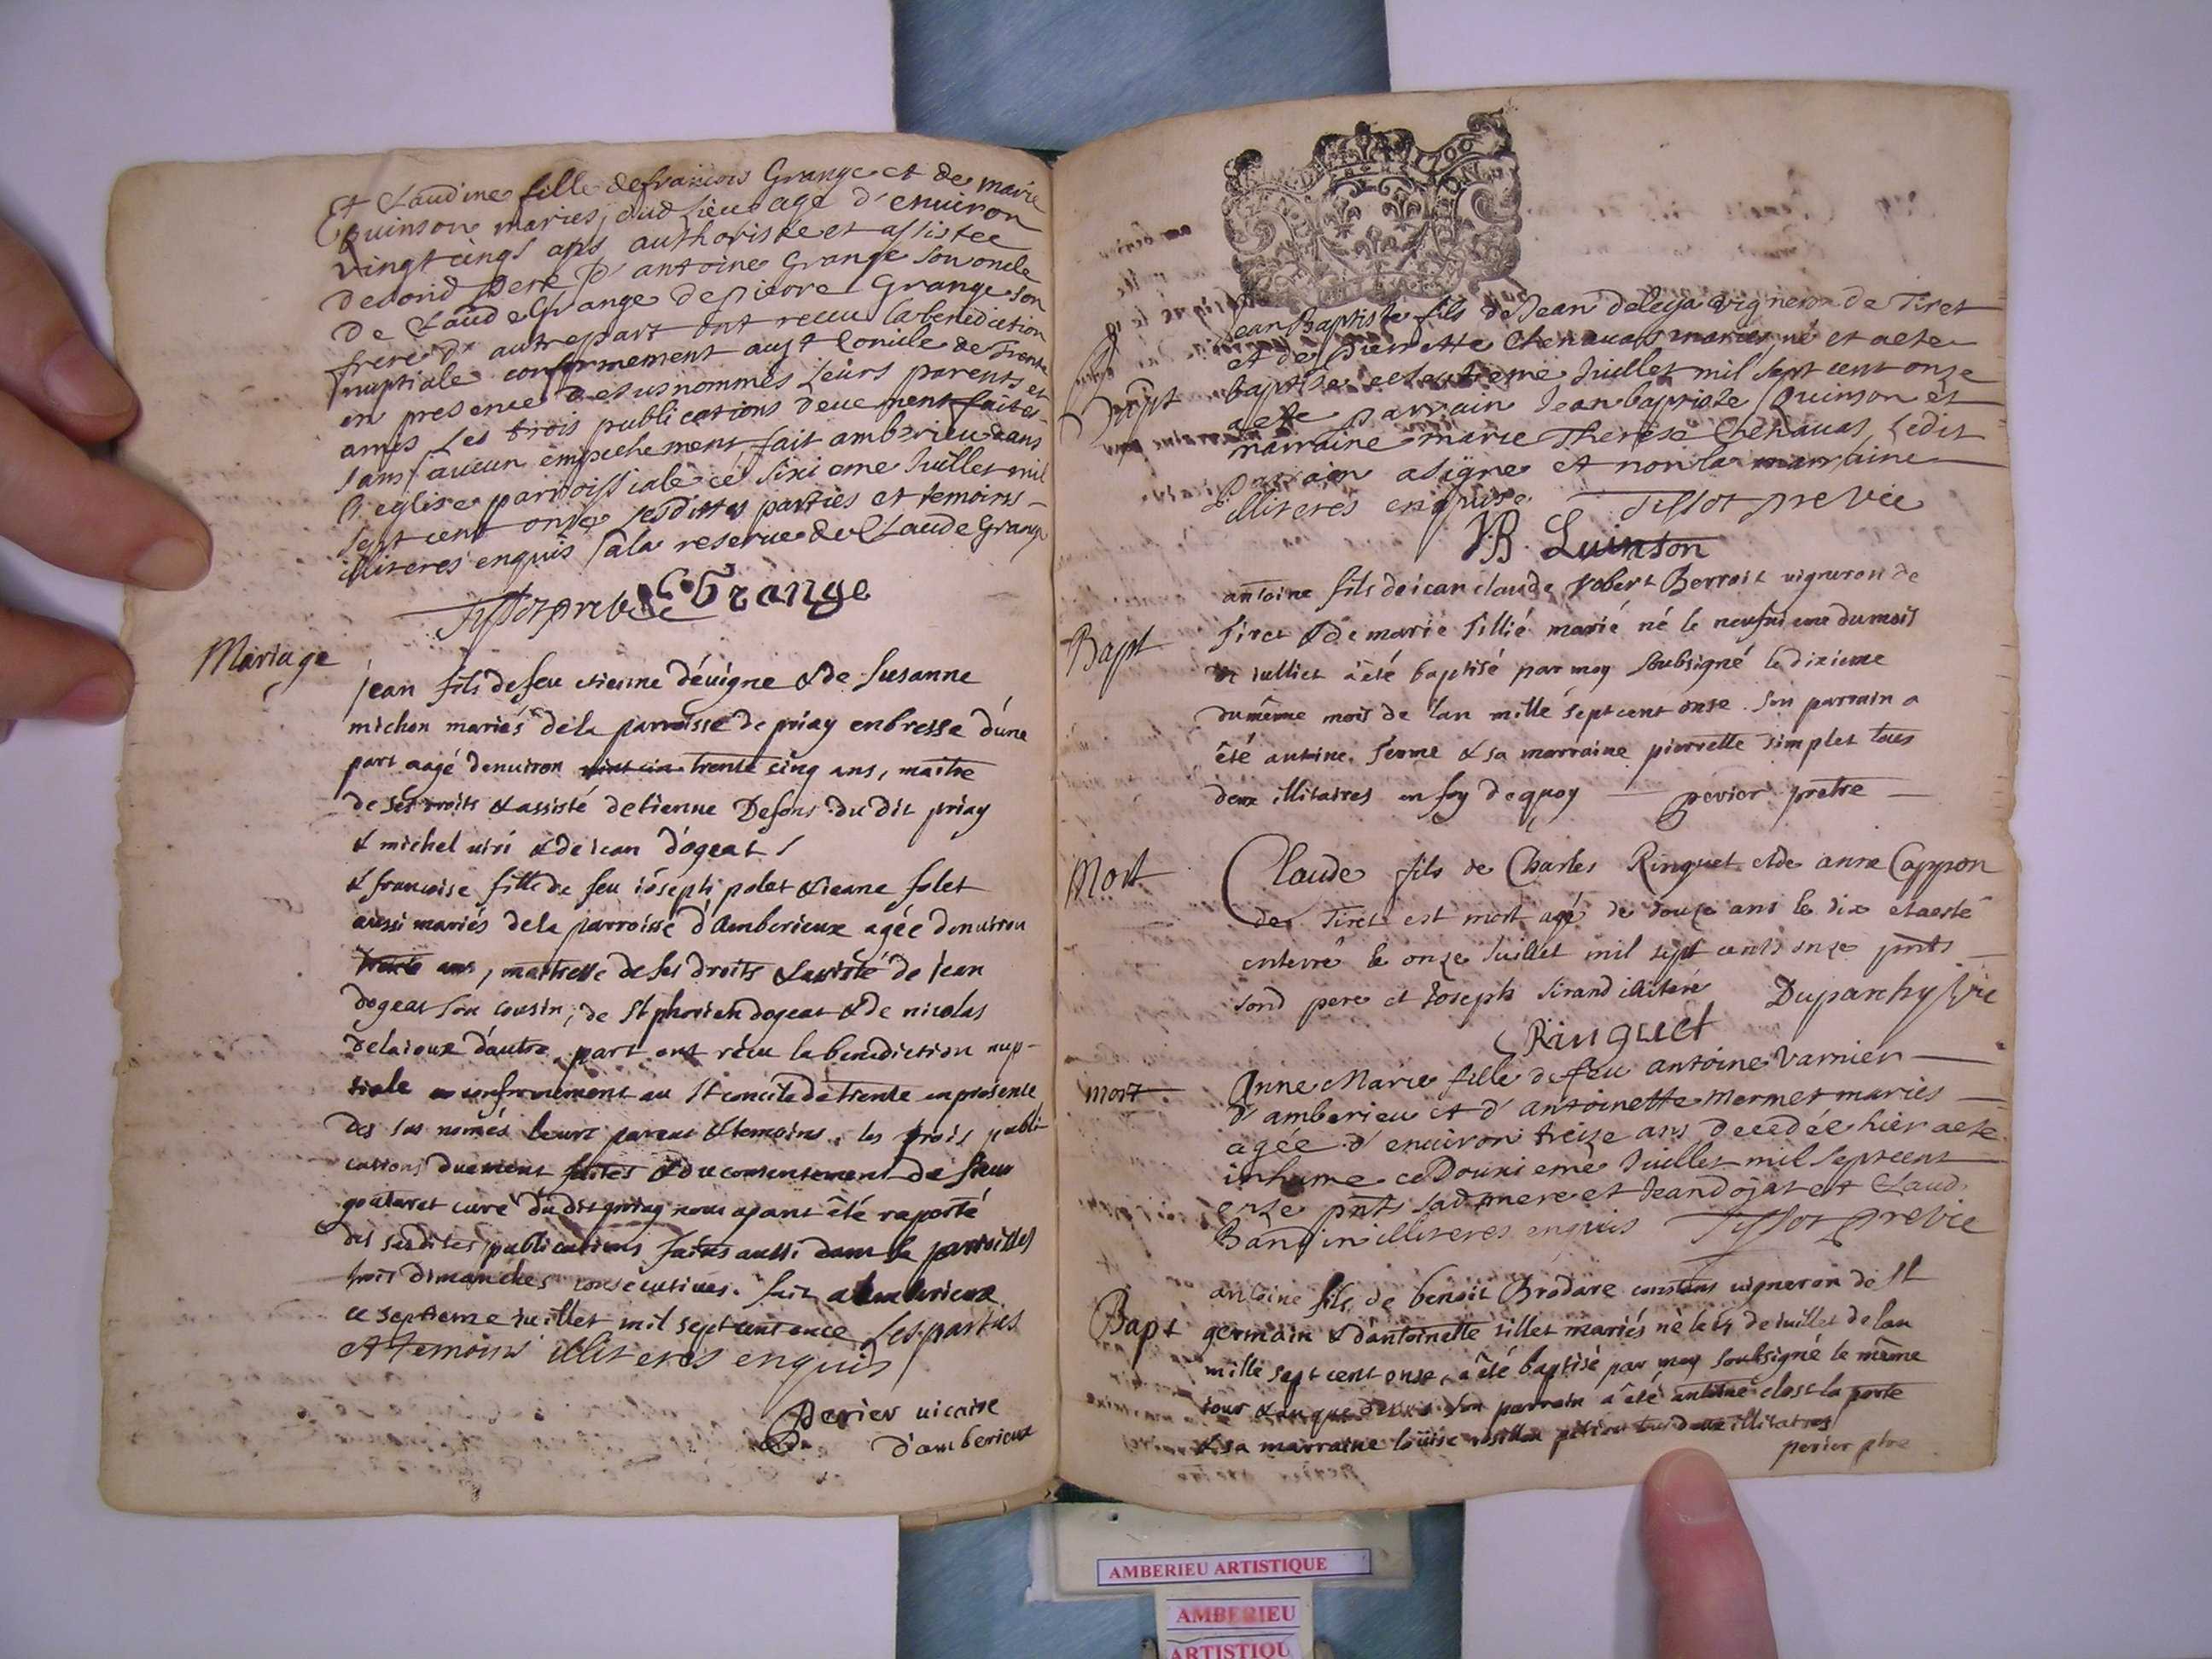 Et Claudine fille de francois Grange et de marie
Quinson maries, dud Lieu age d'environ
vingt cinqs ans authorisée et assistee
de sond pere d'antoine Grange son oncle
de Claude Grange de pierre Grange son
frere d'autrepart ont receu la benediction
nuptiale conformement au st Concile de Trente
en presence des susnommés leurs parents et
amis les trois publications deuement faites
sans aucun empechement, fait amberieu dans
l'eglise parroissiale ce sixieme Juillet mil
sept cent onze lesdittes parties et temoins
illiteres enquis sala reserve de Claude Grange
C Grange
Tissot pre vic
Mariage
jean fils de feu etienne dévigne & de susanne
michon mariés de la parroisse de priay en bresse d'une
part aagé denuiron trente cinq ans, maitre
de ses droits & assisté detienne Defons du dit priay
& michel & de jean dogeat
& francoise fille de feu ioseph polet & ieane folet
aussi mariés de la parroisse d'Amberieux agée denuiron
trente ans, maitresse de ses droits & assisté de jean
dogeat son cousin, de St phorien dogeat & de nicolas
delaioux d'autre part ont récu la benediction nup-
tiale conformement au St concile de trente en presence
des sus només leurs parens & temoins, les trois publi-
cations duement faites & du consentement de sieur
goutaret curé du dit priay nous ayant été raporté
des susdites publications faites aussi dans sa parroisse
trois dimanches consecutives. fait a Amberieux
ce septieme iuillet mil sept cent onze Les parties
et temoins illiteres enquis
Perier uicaire
d'amberieux
Jean Baptiste fils de Jean deleya vigneron de Tiret
et de Pierrette Chenauas maries, né et aete
baptisé ce septieme Juillet mil sept cent onze
Bapt
a este parrain Jean baptiste Quinson et
marraine marie Therese Chenauas, Ledit
parrain a signe et non la marraine
illiteres enquise Tissot pre Vic
JB. Quinson
antoine fils de ican claude Robert Berrost uigneron de
Bapt
Tiret & de marie Tillié marié né le neufuieme du mois
de iulliet a été baptisé par moy Soubsigné le dixieme
du même mois de l'an mille sept cent onse. Son parrain a
été antoine ferme & sa marraine pierrette simplet tous
deux illitaires en foy dequoy perier pretre
Mort
Claude fils de Charles Ringuet et de anne Cappon
de Tiret est mort agé de douze ans le dix et aesté
enterré le onze Juillet mil sept cents onze pnts
sond pere et Joseph Sirand illiteré Duparchy Vic
Ringuet
mort
Anne Marie fille de feu antoine Varnier
d'amberieu et d'antoinette mermet maries
agée d'environ treize ans decedée hier aete
inhume ce Douxieme Juillet mil sept cent
onze pnts sad mere et Jean dojat et Claud.
Bandin illiteres enquis Tissot pre vic
antoine fils de benoit Brodare constans uigneron de St
Bapt
germain & d'antoinette tillet mariés né le 14 de iuillet de lan
mille sept cent onse, a été baptisé par moy Soubsigné le même
iour & an que dessus Son parrain a été antoine closs la porte
& sa marraine loüise rosillon tous deux illitatres
perier ptre
AMBERIEU ARTISTIQUE
AMBERIEU
ARTISTIQU